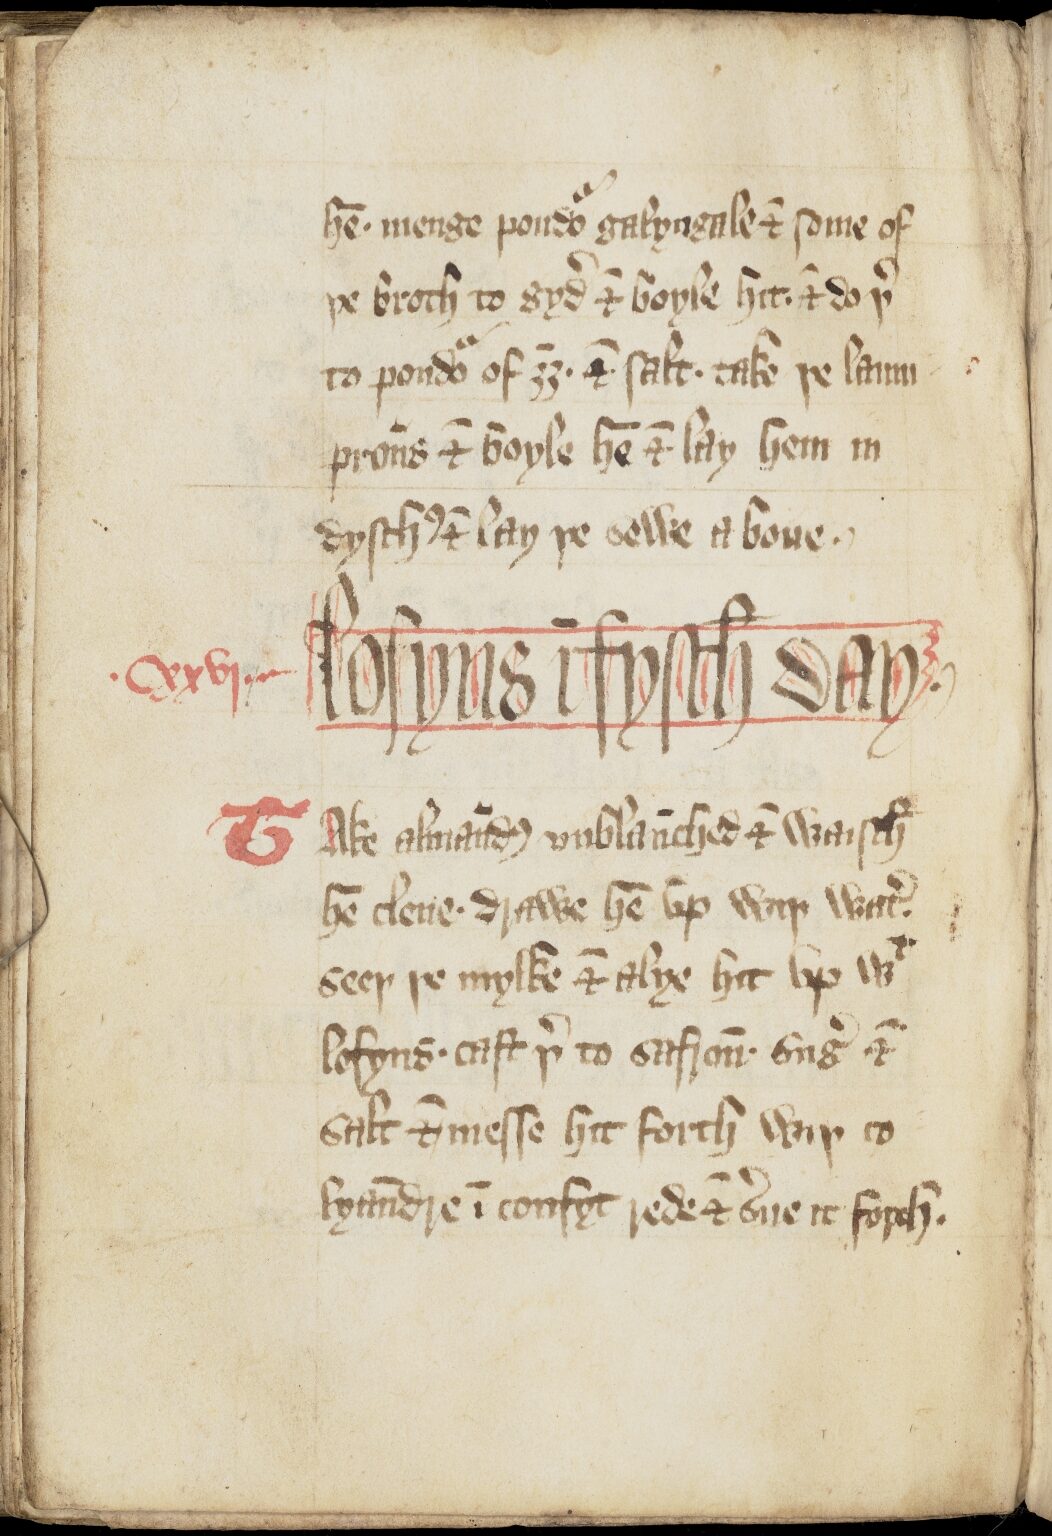 hē· menge poudoᵃ galyngale & some of
þe broth to gydʾ & boyle hit· & do þʾ
to poudoᵃ of ʒʒ̄· & salt· take þe laum
proūs & boyle hē & lay hem in
dyschꝰ & lay þe sewe a boue·
·xxvi· losyns ī fysch day
TAke almaūdꝭ vnblaūched & waisch
hē clene· drawe hē vp wiþ watʾ·
seeþ þe mylke & alye hit vp wᵗ
losyns· cast þʾ to safron̄· sugʾ &
salt & messe hit forth wiþ co
lyandre ī confyt rede & sʾue it forth·